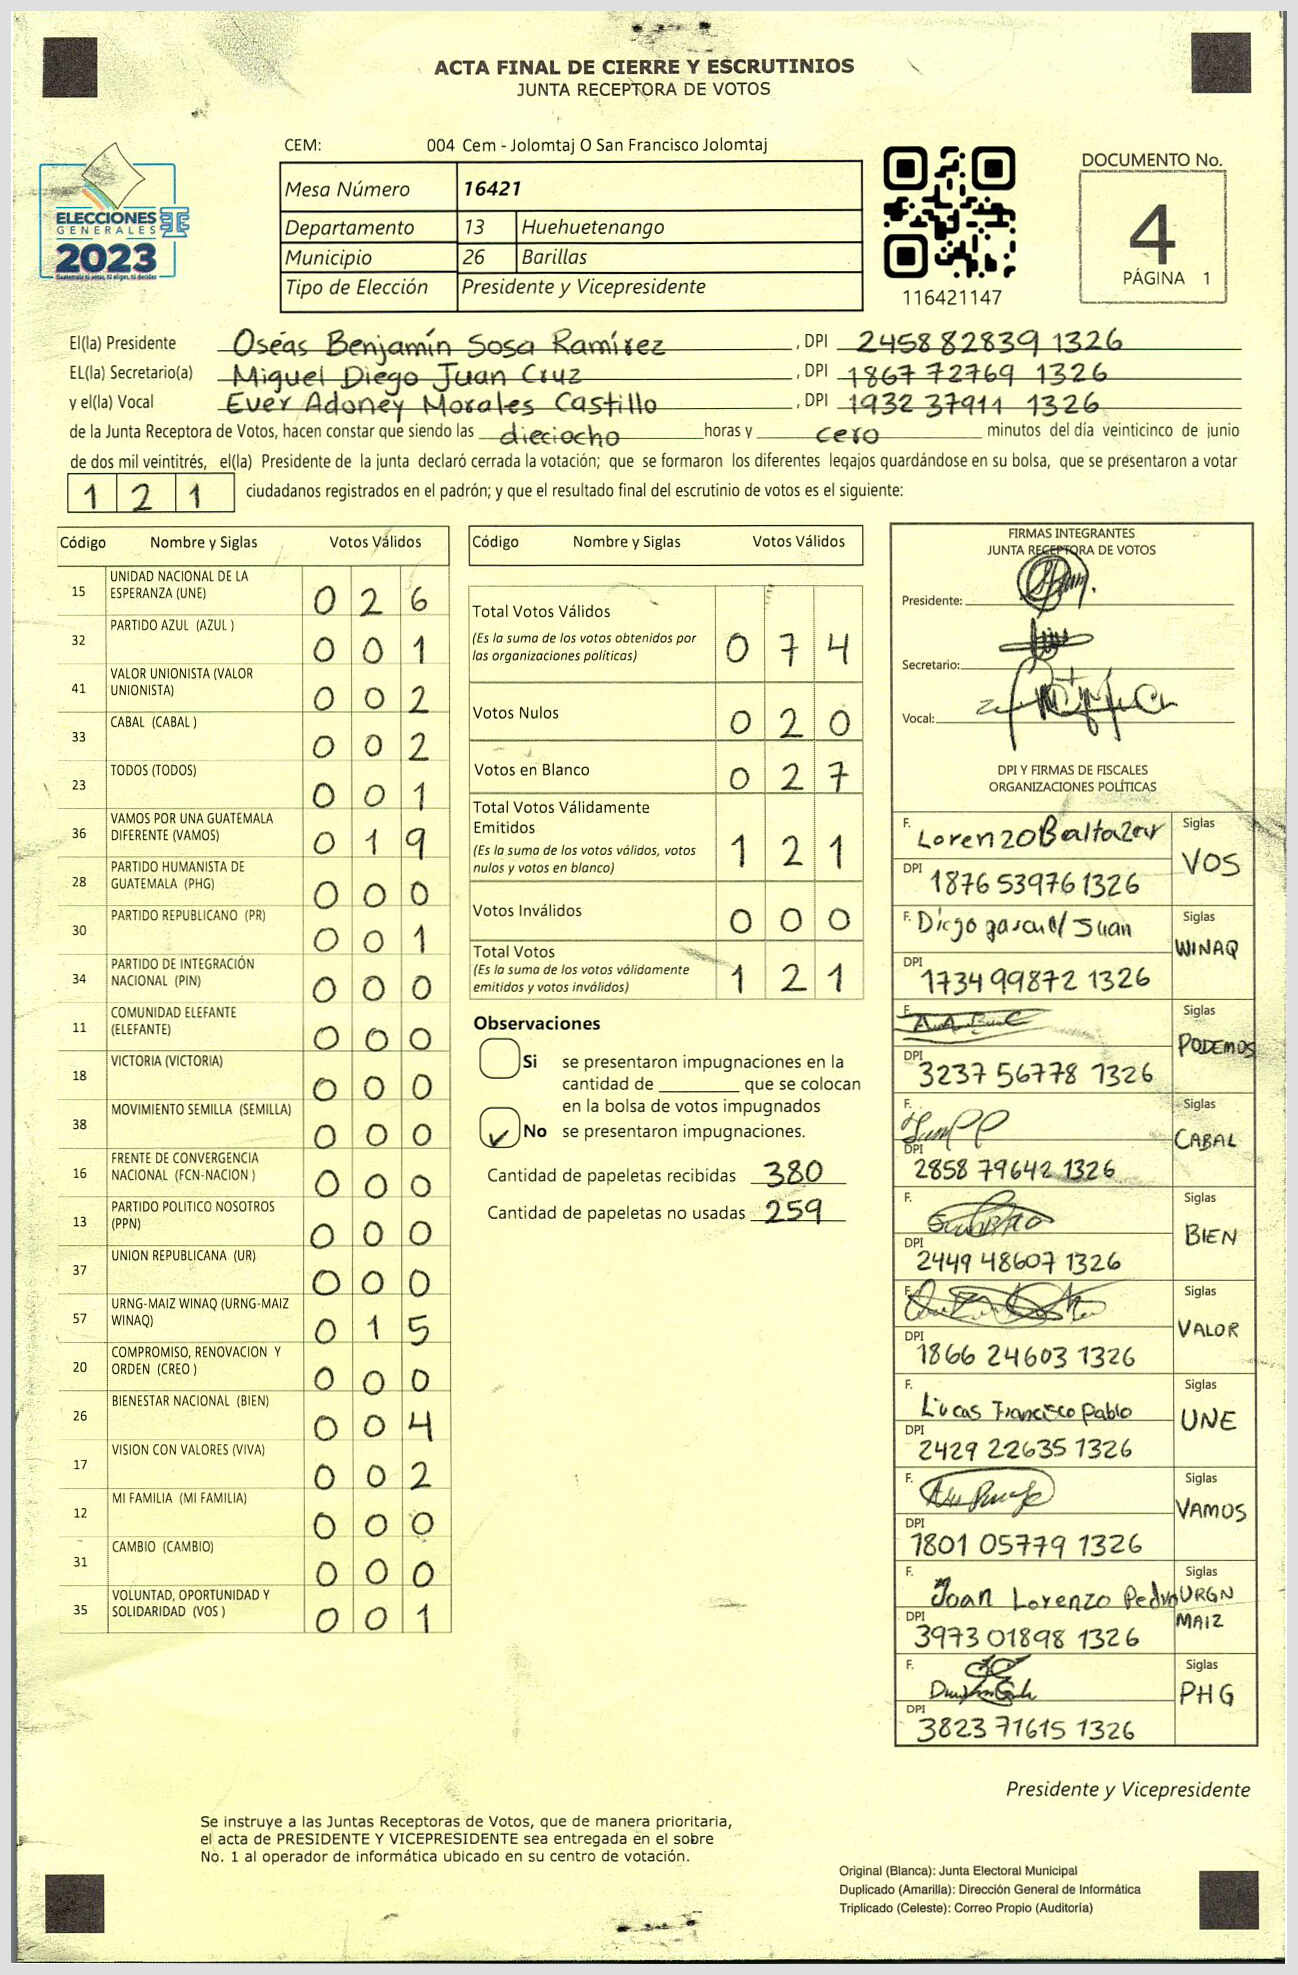 ACTA FINAL DE CIERRE Y ESCRUTINIOS
JUNTA RECEPTORA DE VOTOS
CEM: 004 Cem - Jolomtaj O San Francisco Jolomtaj
ELECCIONES
GENERALES
2023
Mesa Número 16421
Departamento 13 Huehuetenango
Municipio 26 Barillas
Tipo de Elección Presidente y Vicepresidente
116421147
DOCUMENTO No.
4
PÁGINA 1
El(la) Presidente Oséas Benjamín Sosa Ramírez , DPI 2458 82839 1326
EL(la) Secretario(a) Miguel Diego Juan Cruz , DPI 1867 72769 1326
y el(la) Vocal Ever Adoney Morales Castillo , DPI 1932 37911 1326
de la Junta Receptora de Votos, hacen constar que siendo las dieciocho horas y cero minutos del día veinticinco de junio
de dos mil veintitrés, el(la) Presidente de la junta declaró cerrada la votación; que se formaron los diferentes legajos guardándose en su bolsa, que se presentaron a votar
1 2 1 ciudadanos registrados en el padrón; y que el resultado final del escrutinio de votos es el siguiente:
Código Nombre y Siglas Votos Válidos
15 UNIDAD NACIONAL DE LA ESPERANZA (UNE) 0 2 6
32 PARTIDO AZUL (AZUL ) 0 0 1
41 VALOR UNIONISTA (VALOR UNIONISTA) 0 0 2
33 CABAL (CABAL ) 0 0 2
23 TODOS (TODOS) 0 0 1
36 VAMOS POR UNA GUATEMALA DIFERENTE (VAMOS) 0 1 9
28 PARTIDO HUMANISTA DE GUATEMALA (PHG) 0 0 0
30 PARTIDO REPUBLICANO (PR) 0 0 1
34 PARTIDO DE INTEGRACIÓN NACIONAL (PIN) 0 0 0
11 COMUNIDAD ELEFANTE (ELEFANTE) 0 0 0
18 VICTORIA (VICTORIA) 0 0 0
38 MOVIMIENTO SEMILLA (SEMILLA) 0 0 0
16 FRENTE DE CONVERGENCIA NACIONAL (FCN-NACION ) 0 0 0
13 PARTIDO POLITICO NOSOTROS (PPN) 0 0 0
37 UNION REPUBLICANA (UR) 0 0 0
57 URNG-MAIZ WINAQ (URNG-MAIZ WINAQ) 0 1 5
20 COMPROMISO, RENOVACION Y ORDEN (CREO ) 0 0 0
26 BIENESTAR NACIONAL (BIEN) 0 0 4
17 VISION CON VALORES (VIVA) 0 0 2
12 MI FAMILIA (MI FAMILIA) 0 0 0
31 CAMBIO (CAMBIO) 0 0 0
35 VOLUNTAD, OPORTUNIDAD Y SOLIDARIDAD (VOS ) 0 0 1
Código Nombre y Siglas Votos Válidos
Total Votos Válidos 0 7 4
(Es la suma de los votos obtenidos por
las organizaciones políticas)
Votos Nulos 0 2 0
Votos en Blanco 0 2 7
Total Votos Válidamente
Emitidos 1 2 1
(Es la suma de los votos válidos, votos
nulos y votos en blanco)
Votos Inválidos 0 0 0
Total Votos 1 2 1
(Es la suma de los votos válidamente
emitidos y votos inválidos)
Observaciones
Si se presentaron impugnaciones en la
cantidad de que se colocan
en la bolsa de votos impugnados
No se presentaron impugnaciones.
Cantidad de papeletas recibidas 380
Cantidad de papeletas no usadas 259
FIRMAS INTEGRANTES
JUNTA RECEPTORA DE VOTOS
Presidente:
Secretario:
Vocal:
DPI Y FIRMAS DE FISCALES
ORGANIZACIONES POLÍTICAS
F. Lorenzo Baltazar Siglas VOS
DPI 1876 53976 1326
F. Diego Juan Siglas WINAQ
DPI 1734 99872 1326
F. Siglas PODEMOS
DPI 3237 56778 1326
F. Siglas CABAL
DPI 2858 79642 1326
F. Siglas BIEN
DPI 2449 48607 1326
F. Siglas VALOR
DPI 1866 24603 1326
F. Lucas Francisco Pablo Siglas UNE
DPI 2429 22635 1326
F. Siglas VAMOS
DPI 1801 05779 1326
F. Joan Lorenzo Pedro Siglas URGN MAIZ
DPI 3973 01898 1326
F. Siglas PHG
DPI 3823 71615 1326
Presidente y Vicepresidente
Se instruye a las Juntas Receptoras de Votos, que de manera prioritaria,
el acta de PRESIDENTE Y VICEPRESIDENTE sea entregada en el sobre
No. 1 al operador de informática ubicado en su centro de votación.
Original (Blanca): Junta Electoral Municipal
Duplicado (Amarilla): Dirección General de Informática
Triplicado (Celeste): Correo Propio (Auditoría)